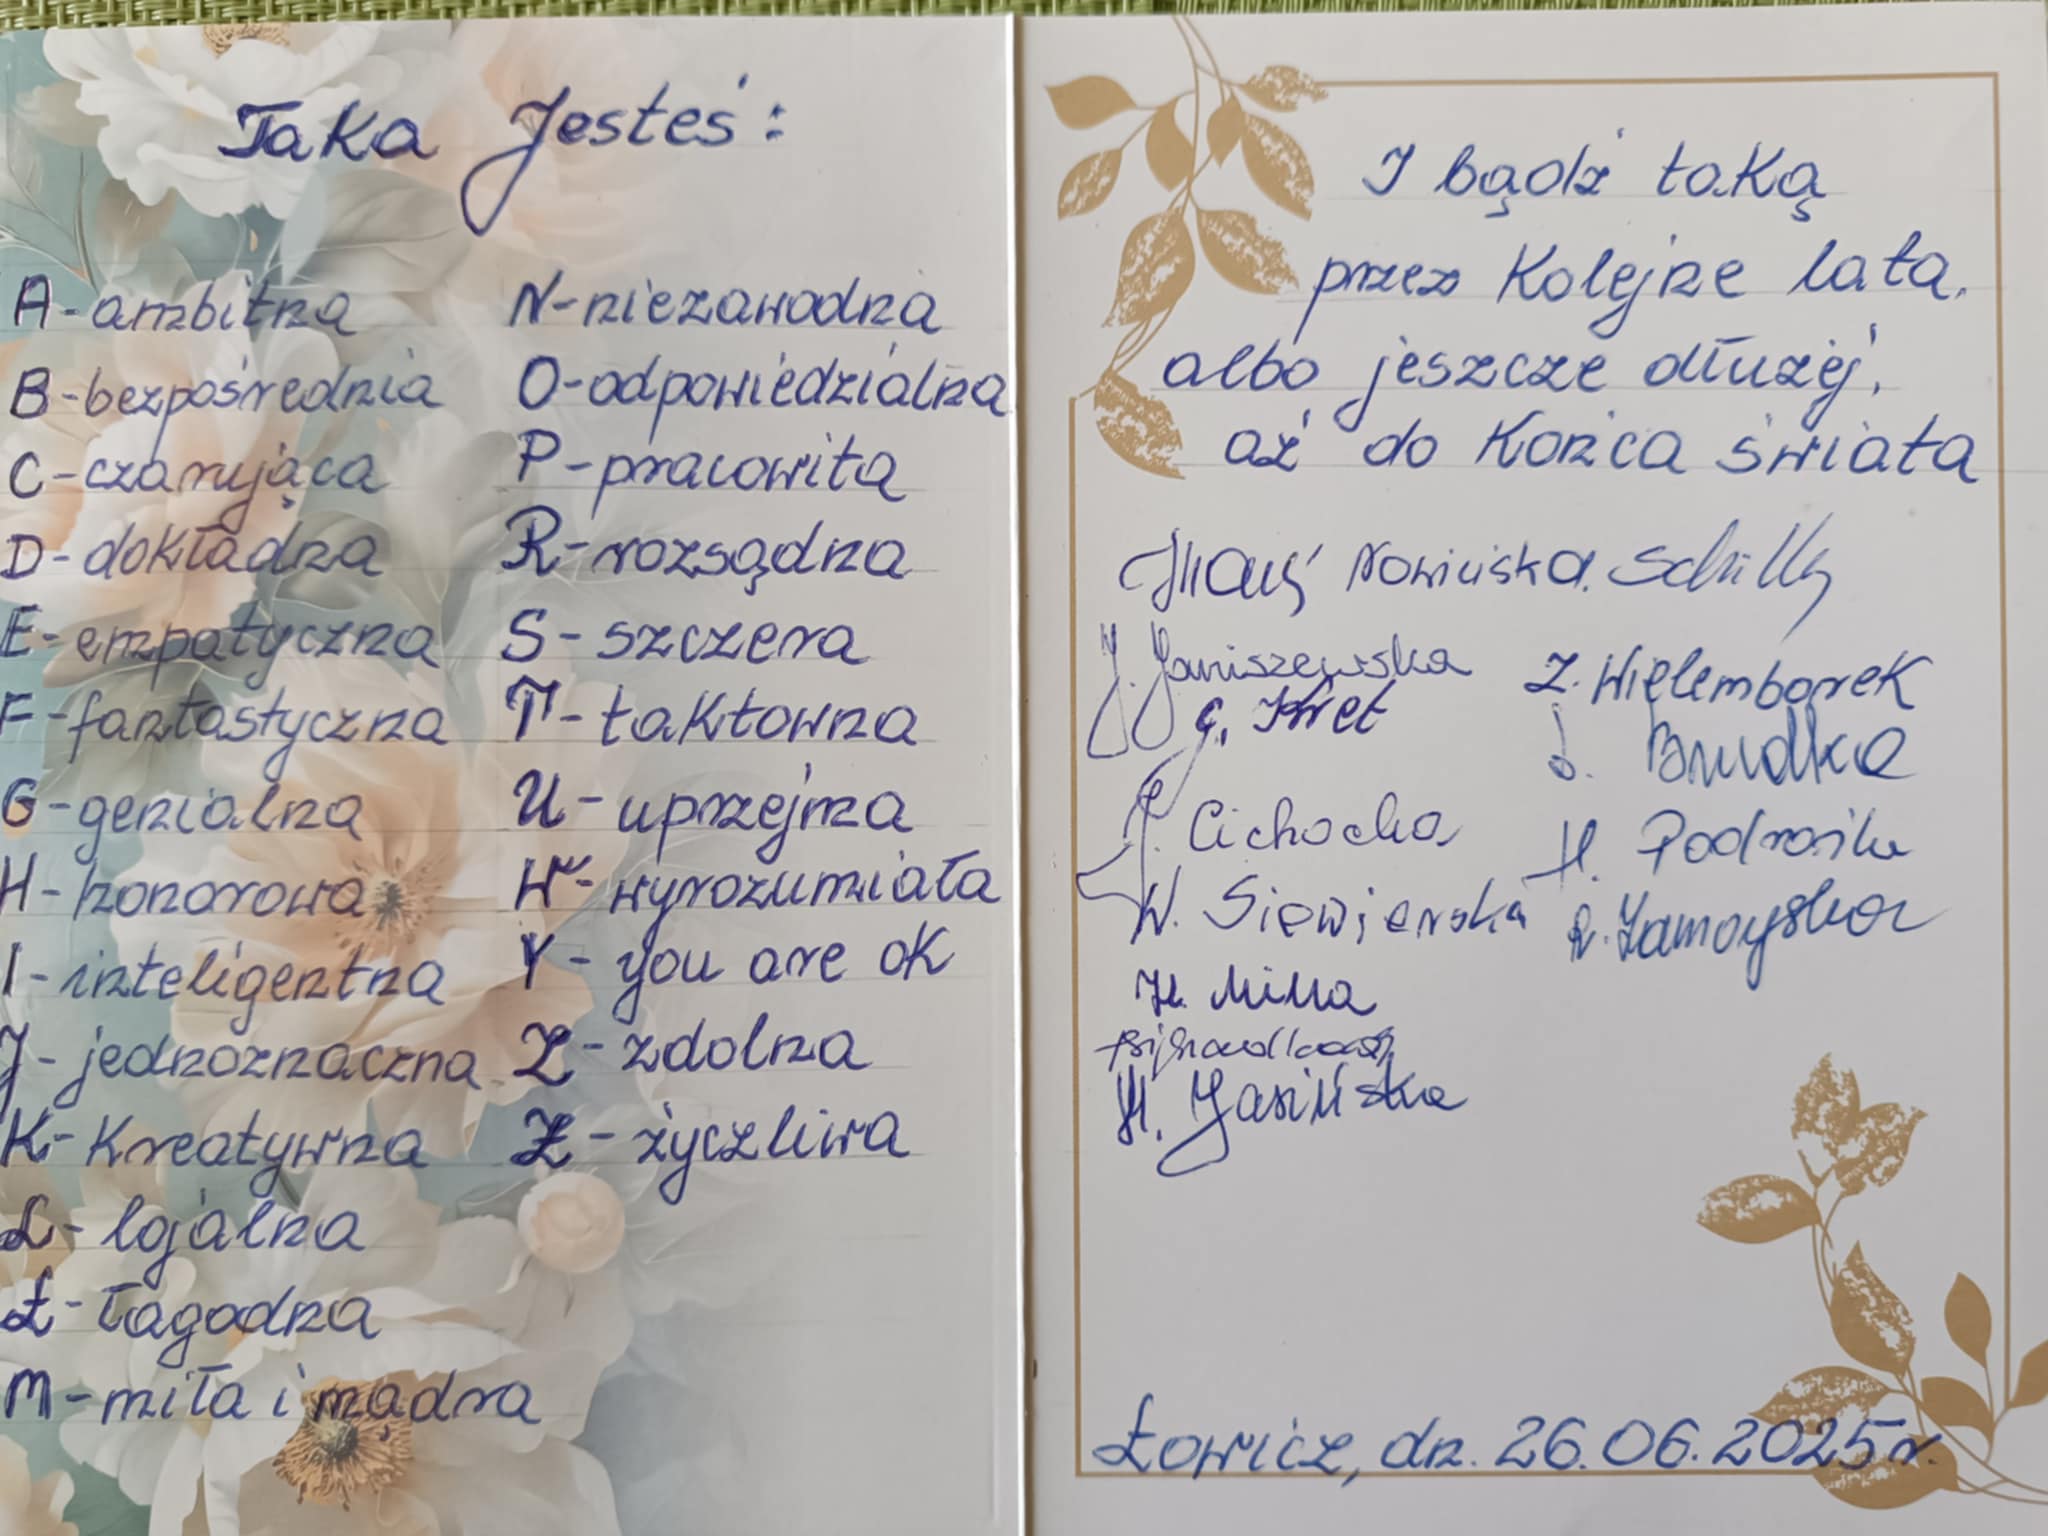 Taka Jesteś:
A - ambitna
B - bezpośrednia
C - czarująca
D - dokładna
E - empatyczna
F - fantastyczna
G - genialna
H - honorowa
I - inteligentna
J - jednoznaczna
K - Kreatywna
L - lojalna
Ł - łagodna
M - miła i mądra
N - niezawodna
O - odpowiedzialna
P - pracowita
R - rozsądna
S - szczera
T - taktowna
U - uprzejma
W - wyrozumiała
Y - you are ok
Z - zdolna
Ż - życzliwa
I bądź taką
przez Kolejne lata,
albo jeszcze dłużej,
aż do Końca świata
Nowińska
J. Janiszewska
Z. Wielemborek
Kret
Brudka
Cichocka
W. Siewierska
R. Zamoyska
Miłła
H. Jasińska
Łowicz, dn. 26.06.2025r.